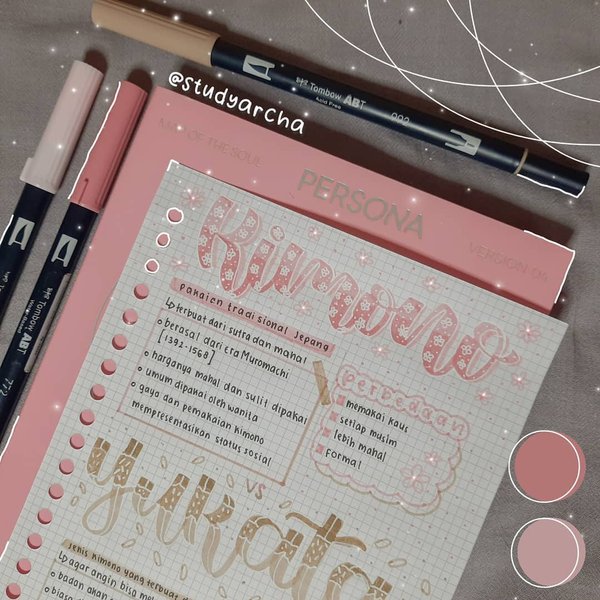 @studyarcha
Tombow ABT
Acid Free
992
MAP OF THE SOUL
PERSONA
VERSION 04
Kimono
pakaian tradisional Jepang
↳ terbuat dari sutra dan mahal
• berasal dari era Muromachi
[1392-1568]
• harganya mahal dan sulit dipakai
• umum dipakai oleh wanita
• gaya dan pemakaian kimono
mempresentasikan status sosial
perbedaan
memakai kaus
setiap musim
lebih mahal
formal
vs
Yukata
jenis kimono yang terbuat d
↳ agar angin bisa me
• badan akan
• biasa
Tombow ABT
772